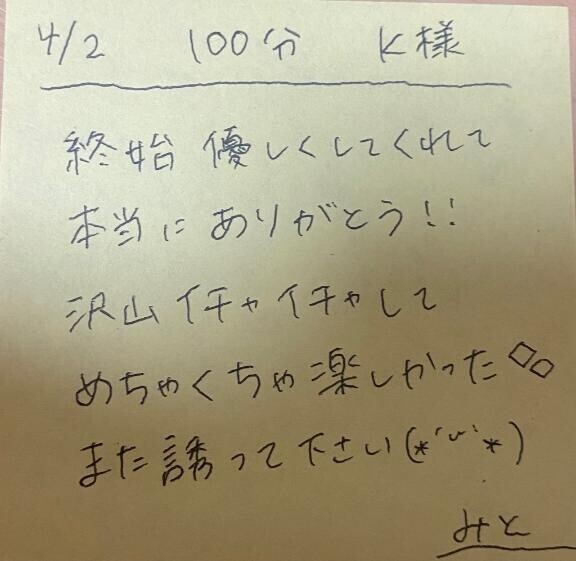 4/2 100分 K様
終始 優しくしてくれて
本当に ありがとう!!
沢山 イチャイチャして
めちゃくちゃ楽しかった◇◇
また誘って下さい(*´ᵕ`*)
みと